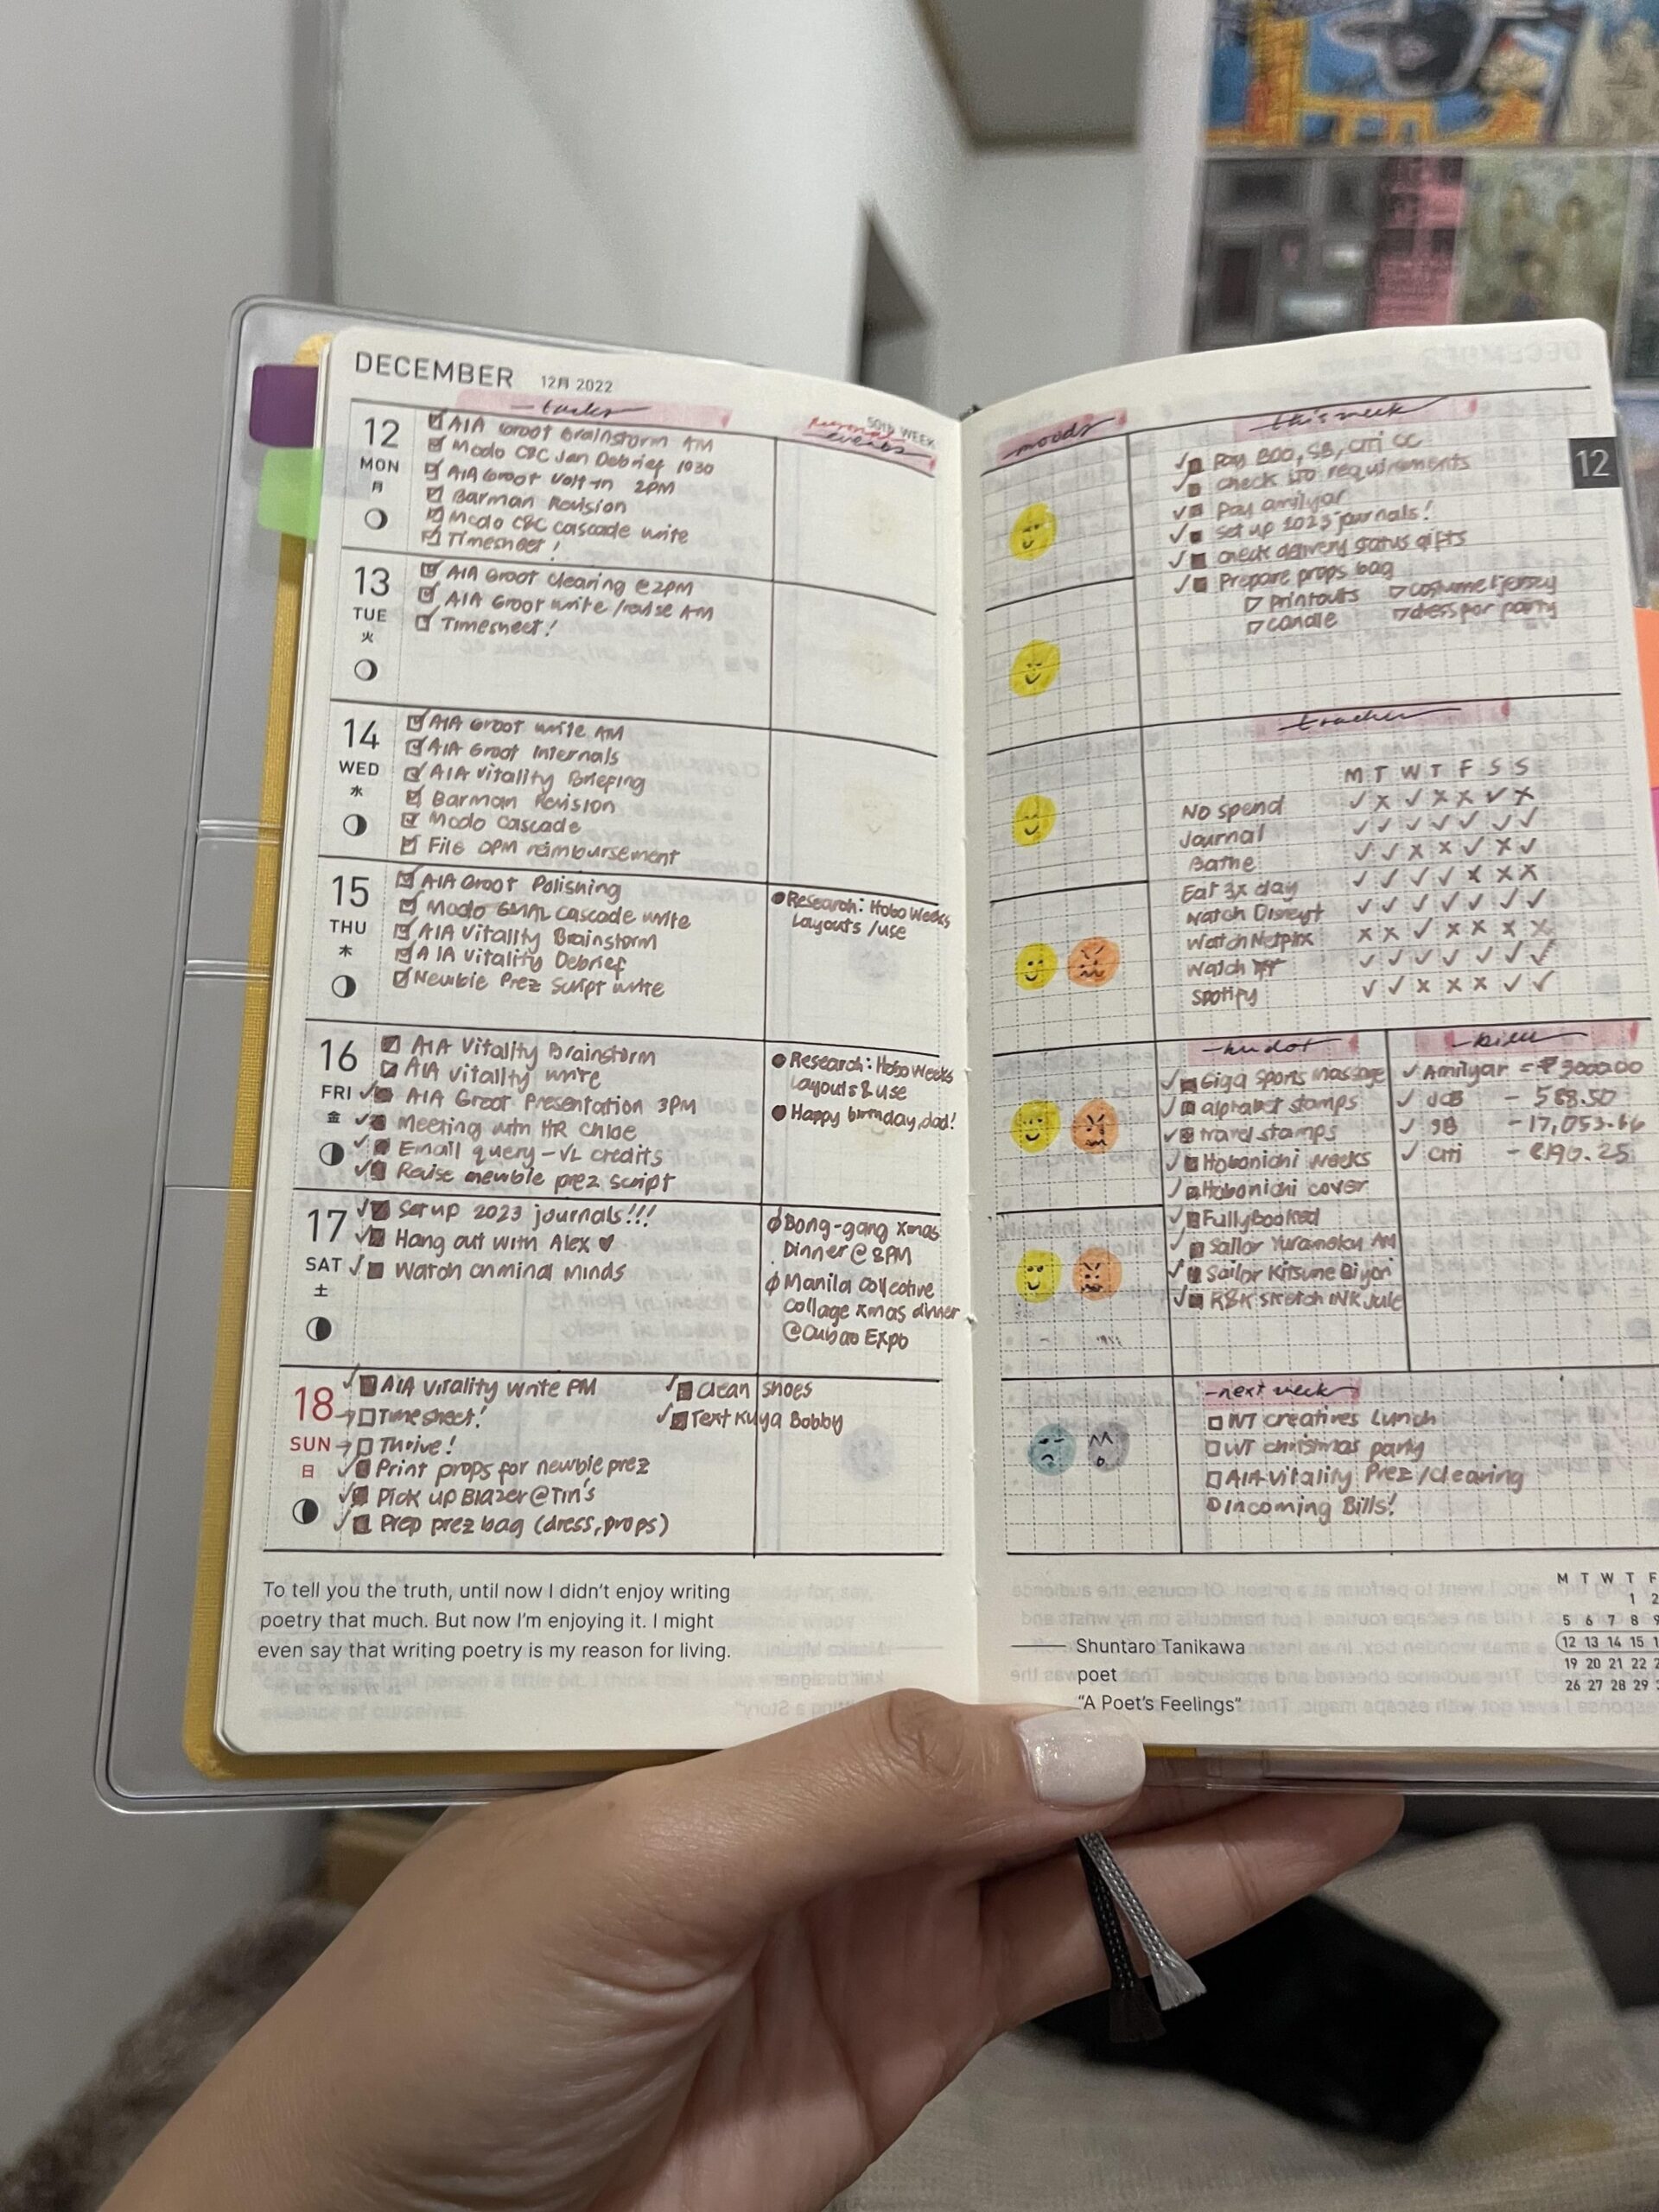 DECEMBER 12月 2022
tasks
50th WEEK
Personal
events
12
MON
月
AIA Groot Brainstorm AM
Modo CBC Jan Debrief 1030
AIA Groot Volt-in 2PM
Barman Revision
Modo CBC cascade write
Timesheet!
13
TUE
火
AIA Groot Clearing @2PM
AIA Groot write /revise AM
Timesheet!
14
WED
水
AIA Groot write AM
AIA Groot Internals
AIA Vitality Briefing
Barman Revision
Modo Cascade
File OPM reimbursement
15
THU
木
AIA Groot Polishing
Modo GMAL cascade write
AIA Vitality Brainstorm
AIA Vitality Debrief
Newbie Prez Script write
Research: Hobo Weeks
Layouts /use
16
FRI
金
AIA Vitality Brainstorm
AIA Vitality write
AIA Groot Presentation 3PM
Meeting with HR Chloe
Email query - VL credits
Revise newbie prez script
Research: Hobo Weeks
Layouts & use
Happy birthday, dad!
17
SAT
土
Set up 2023 journals!!!
Hang out with Alex ♥
Watch criminal minds
Bong-gang xmas
Dinner @ 8PM
Manila Collective
Collage xmas dinner
@Cubao Expo
18
SUN
日
AIA Vitality write PM
Timesheet!
Thrive!
Print props for newbie prez
Pick up Blazer @ Tin's
Prep prez bag (dress, props)
Clean shoes
Text Kuya Bobby
To tell you the truth, until now I didn't enjoy writing
poetry that much. But now I'm enjoying it. I might
even say that writing poetry is my reason for living.
moods
this week
12
Pay BDO, SB, Citi CC
Check LTO requirements
Pay amilyar
Set up 2023 journals!
Check delivery status gifts
Prepare props bag
printouts
costume/jersey
candle
dress for party
tracker
M T W T F S S
No spend ✓ x ✓ x x ✓ x
Journal ✓ ✓ ✓ ✓ ✓ ✓ ✓
Bathe ✓ ✓ x x ✓ x ✓
Eat 3x day ✓ ✓ ✓ ✓ x x x
Watch Disney+ ✓ ✓ ✓ ✓ ✓ ✓ ✓
Watch Netflix x x ✓ x x x x
Watch ✓ ✓ ✓ ✓ ✓ ✓ ✓
Spotify ✓ ✓ x x x ✓ ✓
Giga Sports Massage
alphabet stamps
travel stamps
Hobonichi Weeks
Hobonichi cover
FullyBooked
Sailor Yurameku AM
Sailor Kitsune Biyori
R&K Sketch INK Jule
bills
Amilyar
JCB - 568.50
SB - 17,053.66
Citi
next week
WT creatives Lunch
WT christmas party
AIA Vitality Prez /clearing
Incoming Bills!
Shuntaro Tanikawa
poet
"A Poet's Feelings"
M T W T F
1 2
5 6 7 8 9
12 13 14 15 1
19 20 21 22 2
26 27 28 29 3